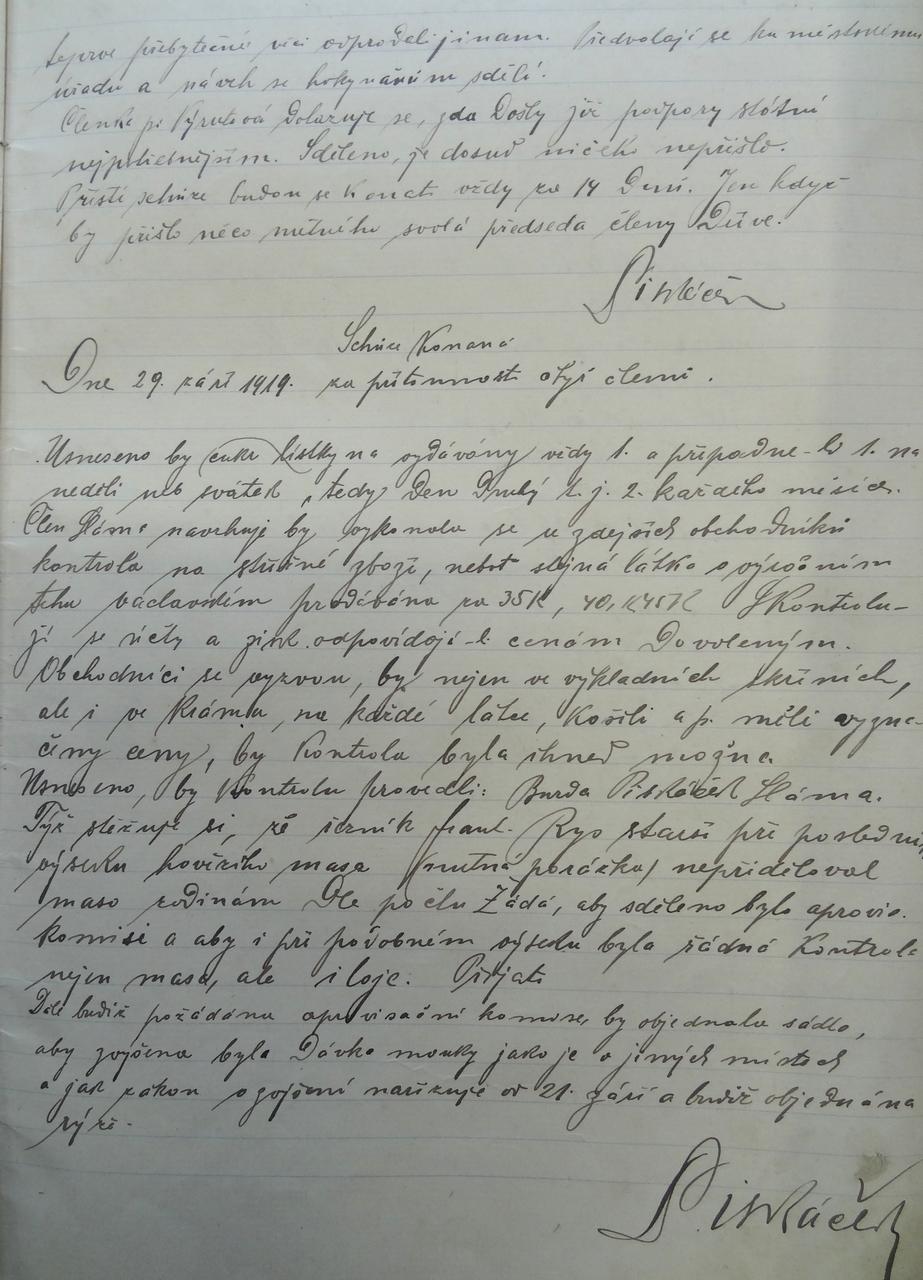 teprve přebytečné věci odprodeli jinam. Předvolají se ku městskému
úřadu a návrh se hokynářům sdělí.
Členka pí Výrutová dotazuje se, zda došly již podpory státní
nejpotřebnějším. Sděleno, že dosud ničeho nepřišlo.
Příští schůze budou se konati vždy za 14 dní. Jen když
by přišlo něco nutného svolá předseda členy dříve.
Piskáček
Schůze konaná
Dne 29. září 1919. za přítomnosti čtyř členů.
Usneseno by cukr lístky na vydávány vždy 1. a připadne-li 1. na
neděli neb svátek, tedy den druhý t. j. 2. každého měsíce.
Člen Sláma navrhuje by vykonala se u zdejších obchodníků
kontrola na slušné zboží, neboť stejná látka o výročním
trhu václavském prodávána za 35K, 40, K45K Skontrolu-
jí se účty a zjist. odpovídají-li cenám dovoleným.
Obchodníci se vyzvou, by nejen ve výkladních skříních,
ale i ve krámu, na každé látce, košili a p. měli vyzna-
čeny ceny, by kontrola byla ihned možna
Usneseno, by kontrolu provedli: Burda Piskáček Sláma.
Týž stěžuje si, že řezník Frant. Ryo starší při poslední
výseku hovězího masa (nutná porážka) nepřiděloval
maso rodinám dle počtu Žádá, aby sděleno bylo aprovis.
komisi a aby i při podobném výseku byla řádná kontrola
nejen masa, ale i loje. Přijato
Dále budiž požádána aprovisační komise, by objednala sádlo,
aby zvýšena byla dávka mouky jako je v jiných místech
a jak zákon o zvýšení nařizuje od 21. září a budiž objednána
rýže.
Piskáček